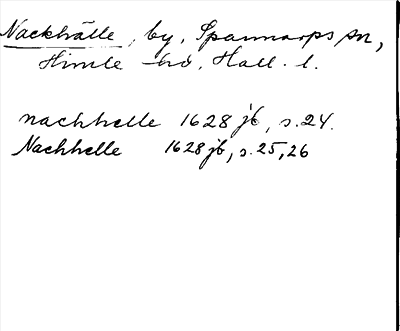 Nackhälle, by, Spannarps sn,
Himle hd, Hall. l.
nachhelle 1628 jb, s. 24.
Nachhelle 1628 jb, s. 25, 26